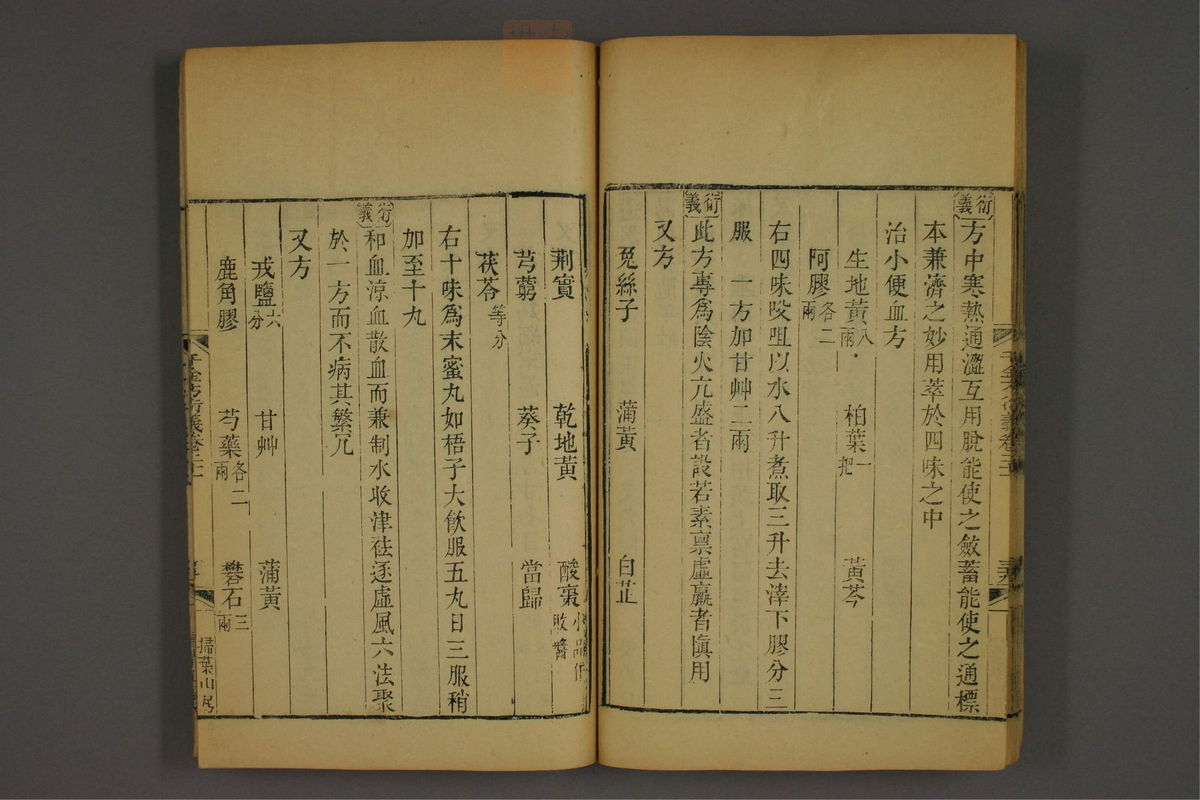 〔衍義〕方中寒熱通澀互用脫能使之斂蓄能使之通標
本兼濟之妙用萃於四味之中
治小便血方
生地黃八兩 柏葉一把 黃芩
阿膠各二兩
右四味㕮咀以水八升煮取三升去滓下膠分三
服 一方加甘艸二兩
〔衍義〕此方專爲陰火亢盛者設若素禀虛羸者愼用
又方
兔絲子 蒲黃 白芷
荆實 乾地黃 酸棗小品作敗醬
芎藭 葵子 當歸
茯苓等分
右十味爲末蜜丸如梧子大飮服五丸日三服稍
加至十丸
〔衍義〕和血涼血散血而兼制水收津祛逐虛風六法聚
於一方而不病其繁冗
又方
戎鹽六分 甘艸 蒲黃
鹿角膠 芍藥各二兩 礬石三兩
千金方衍義卷
掃葉山房